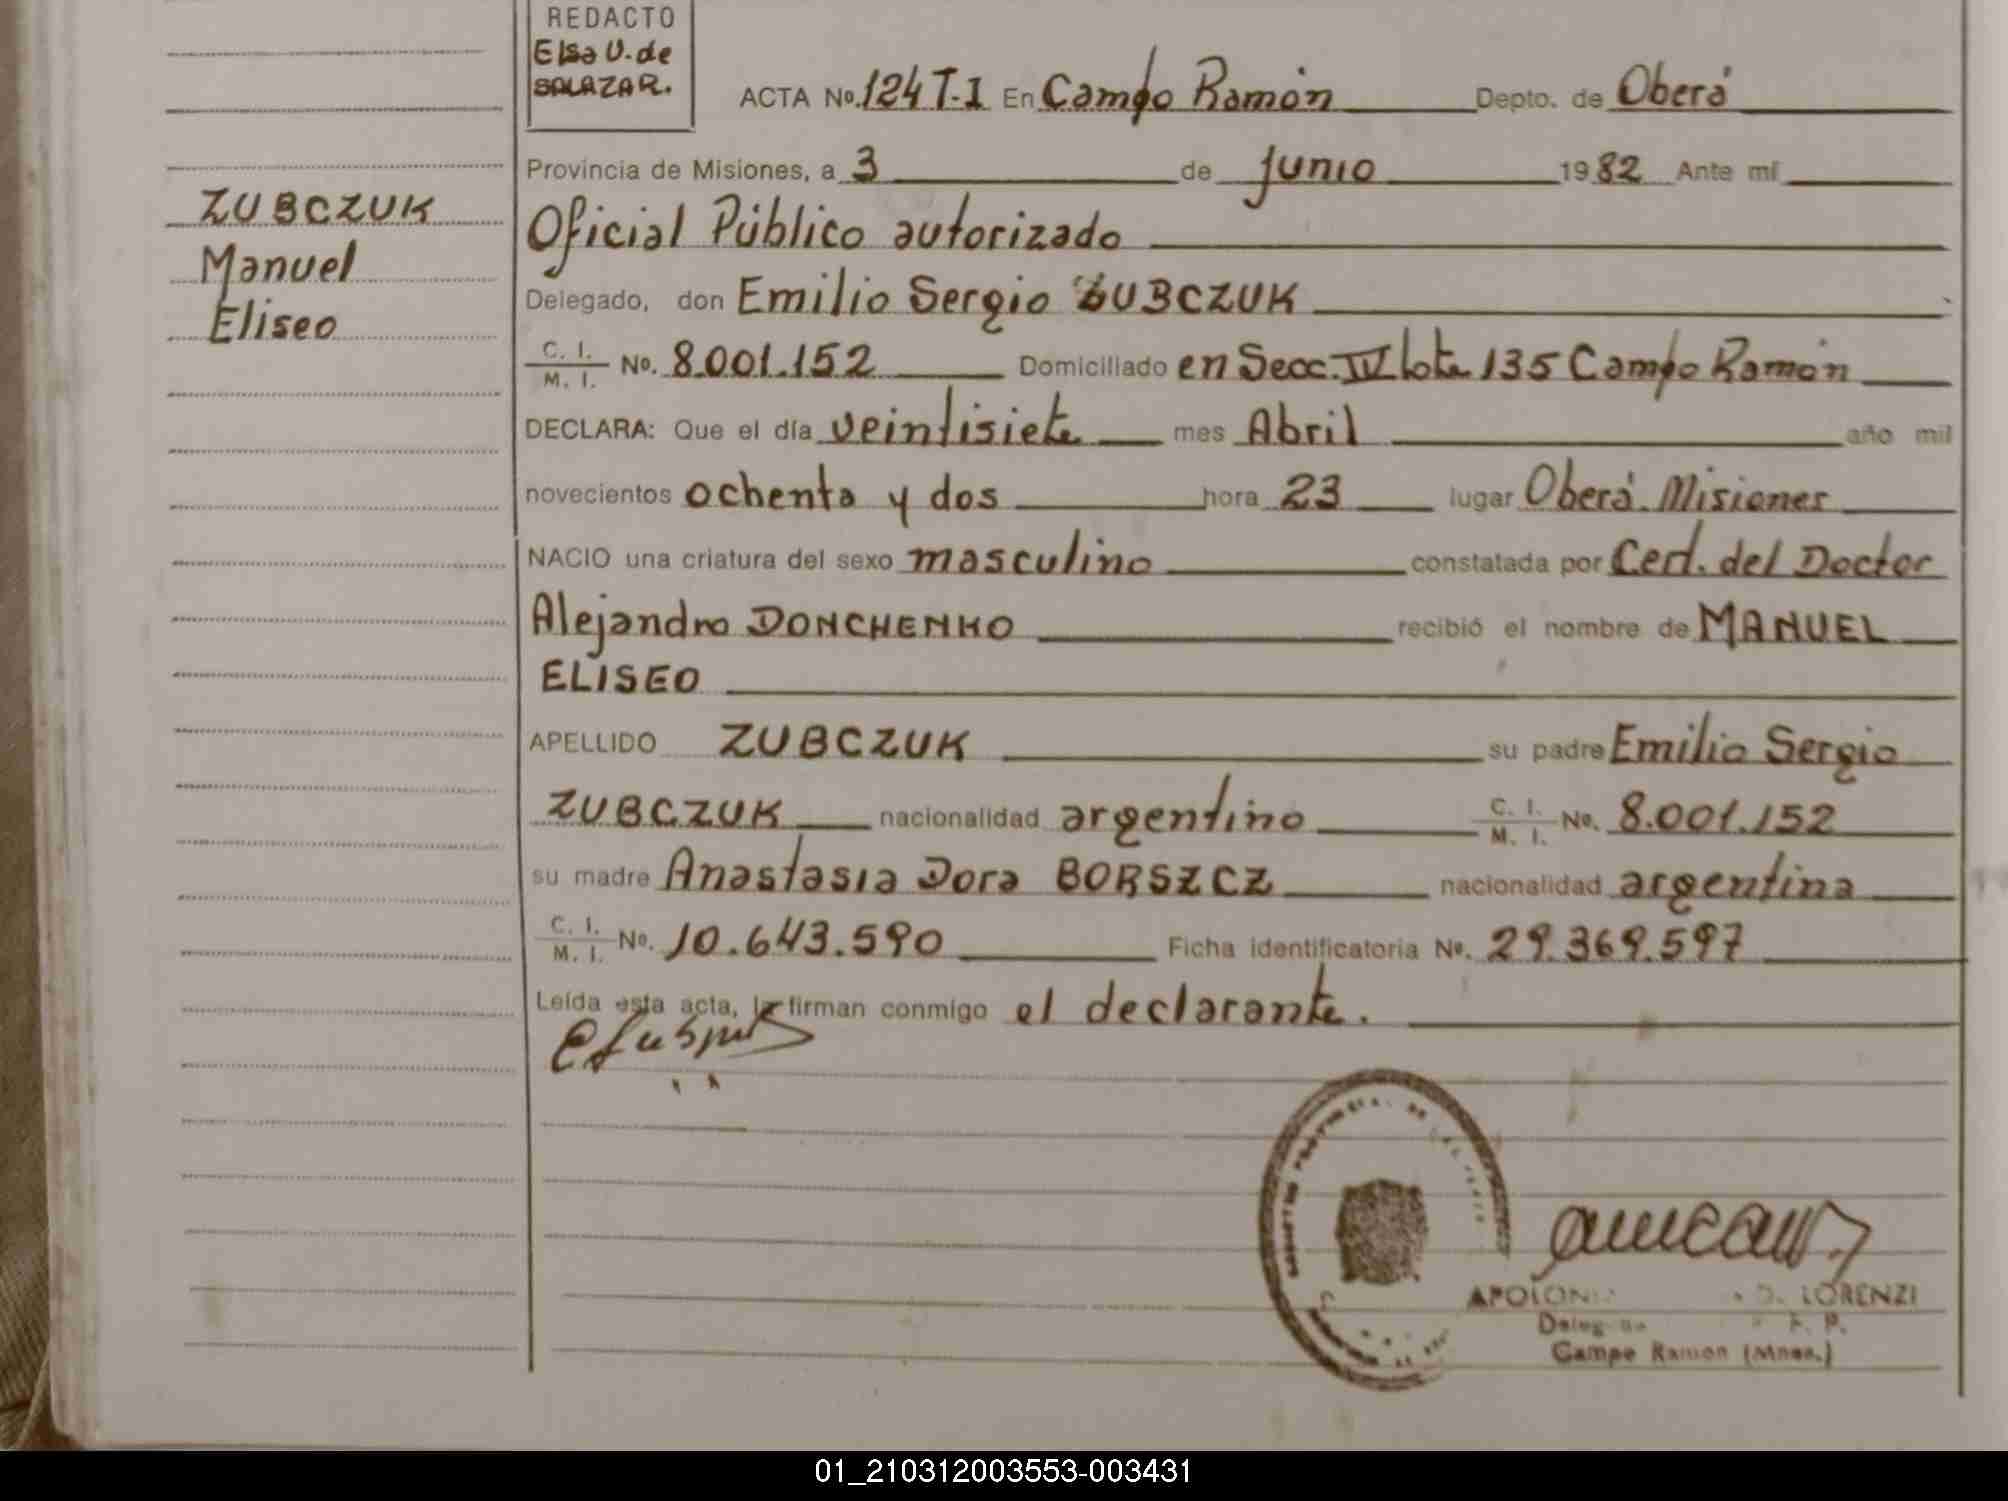 REDACTO
Elsa V. de
SALAZAR.
ACTA Nº. 124 T-I En Campo Ramón Depto. de Oberá
Provincia de Misiones, a 3 de junio 1982 Ante mí
Oficial Público autorizado
Delegado, don Emilio Sergio ZUBCZUK
C. I. / M. I. Nº. 8.001.152 Domiciliado en Secc. IV lote 135 Campo Ramón
DECLARA: Que el día veintisiete mes Abril año mil
novecientos ochenta y dos hora 23 lugar Oberá. Misiones
NACIO una criatura del sexo masculino constatada por Cert. del Doctor
Alejandro DONCHENKO recibió el nombre de MANUEL
ELISEO
APELLIDO ZUBCZUK su padre Emilio Sergio
ZUBCZUK nacionalidad argentino C. I. / M. I. Nº. 8.001.152
su madre Anastasia Dora BORSZCZ nacionalidad argentina
C. I. / M. I. Nº. 10.643.590 Ficha identificatoria Nº. 29.369.597
Leída esta acta, la firman conmigo el declarante.
ZUBCZUK
Manuel
Eliseo
D. LORENZI
Campo Ramon (Mnes.)
01_210312003553-003431